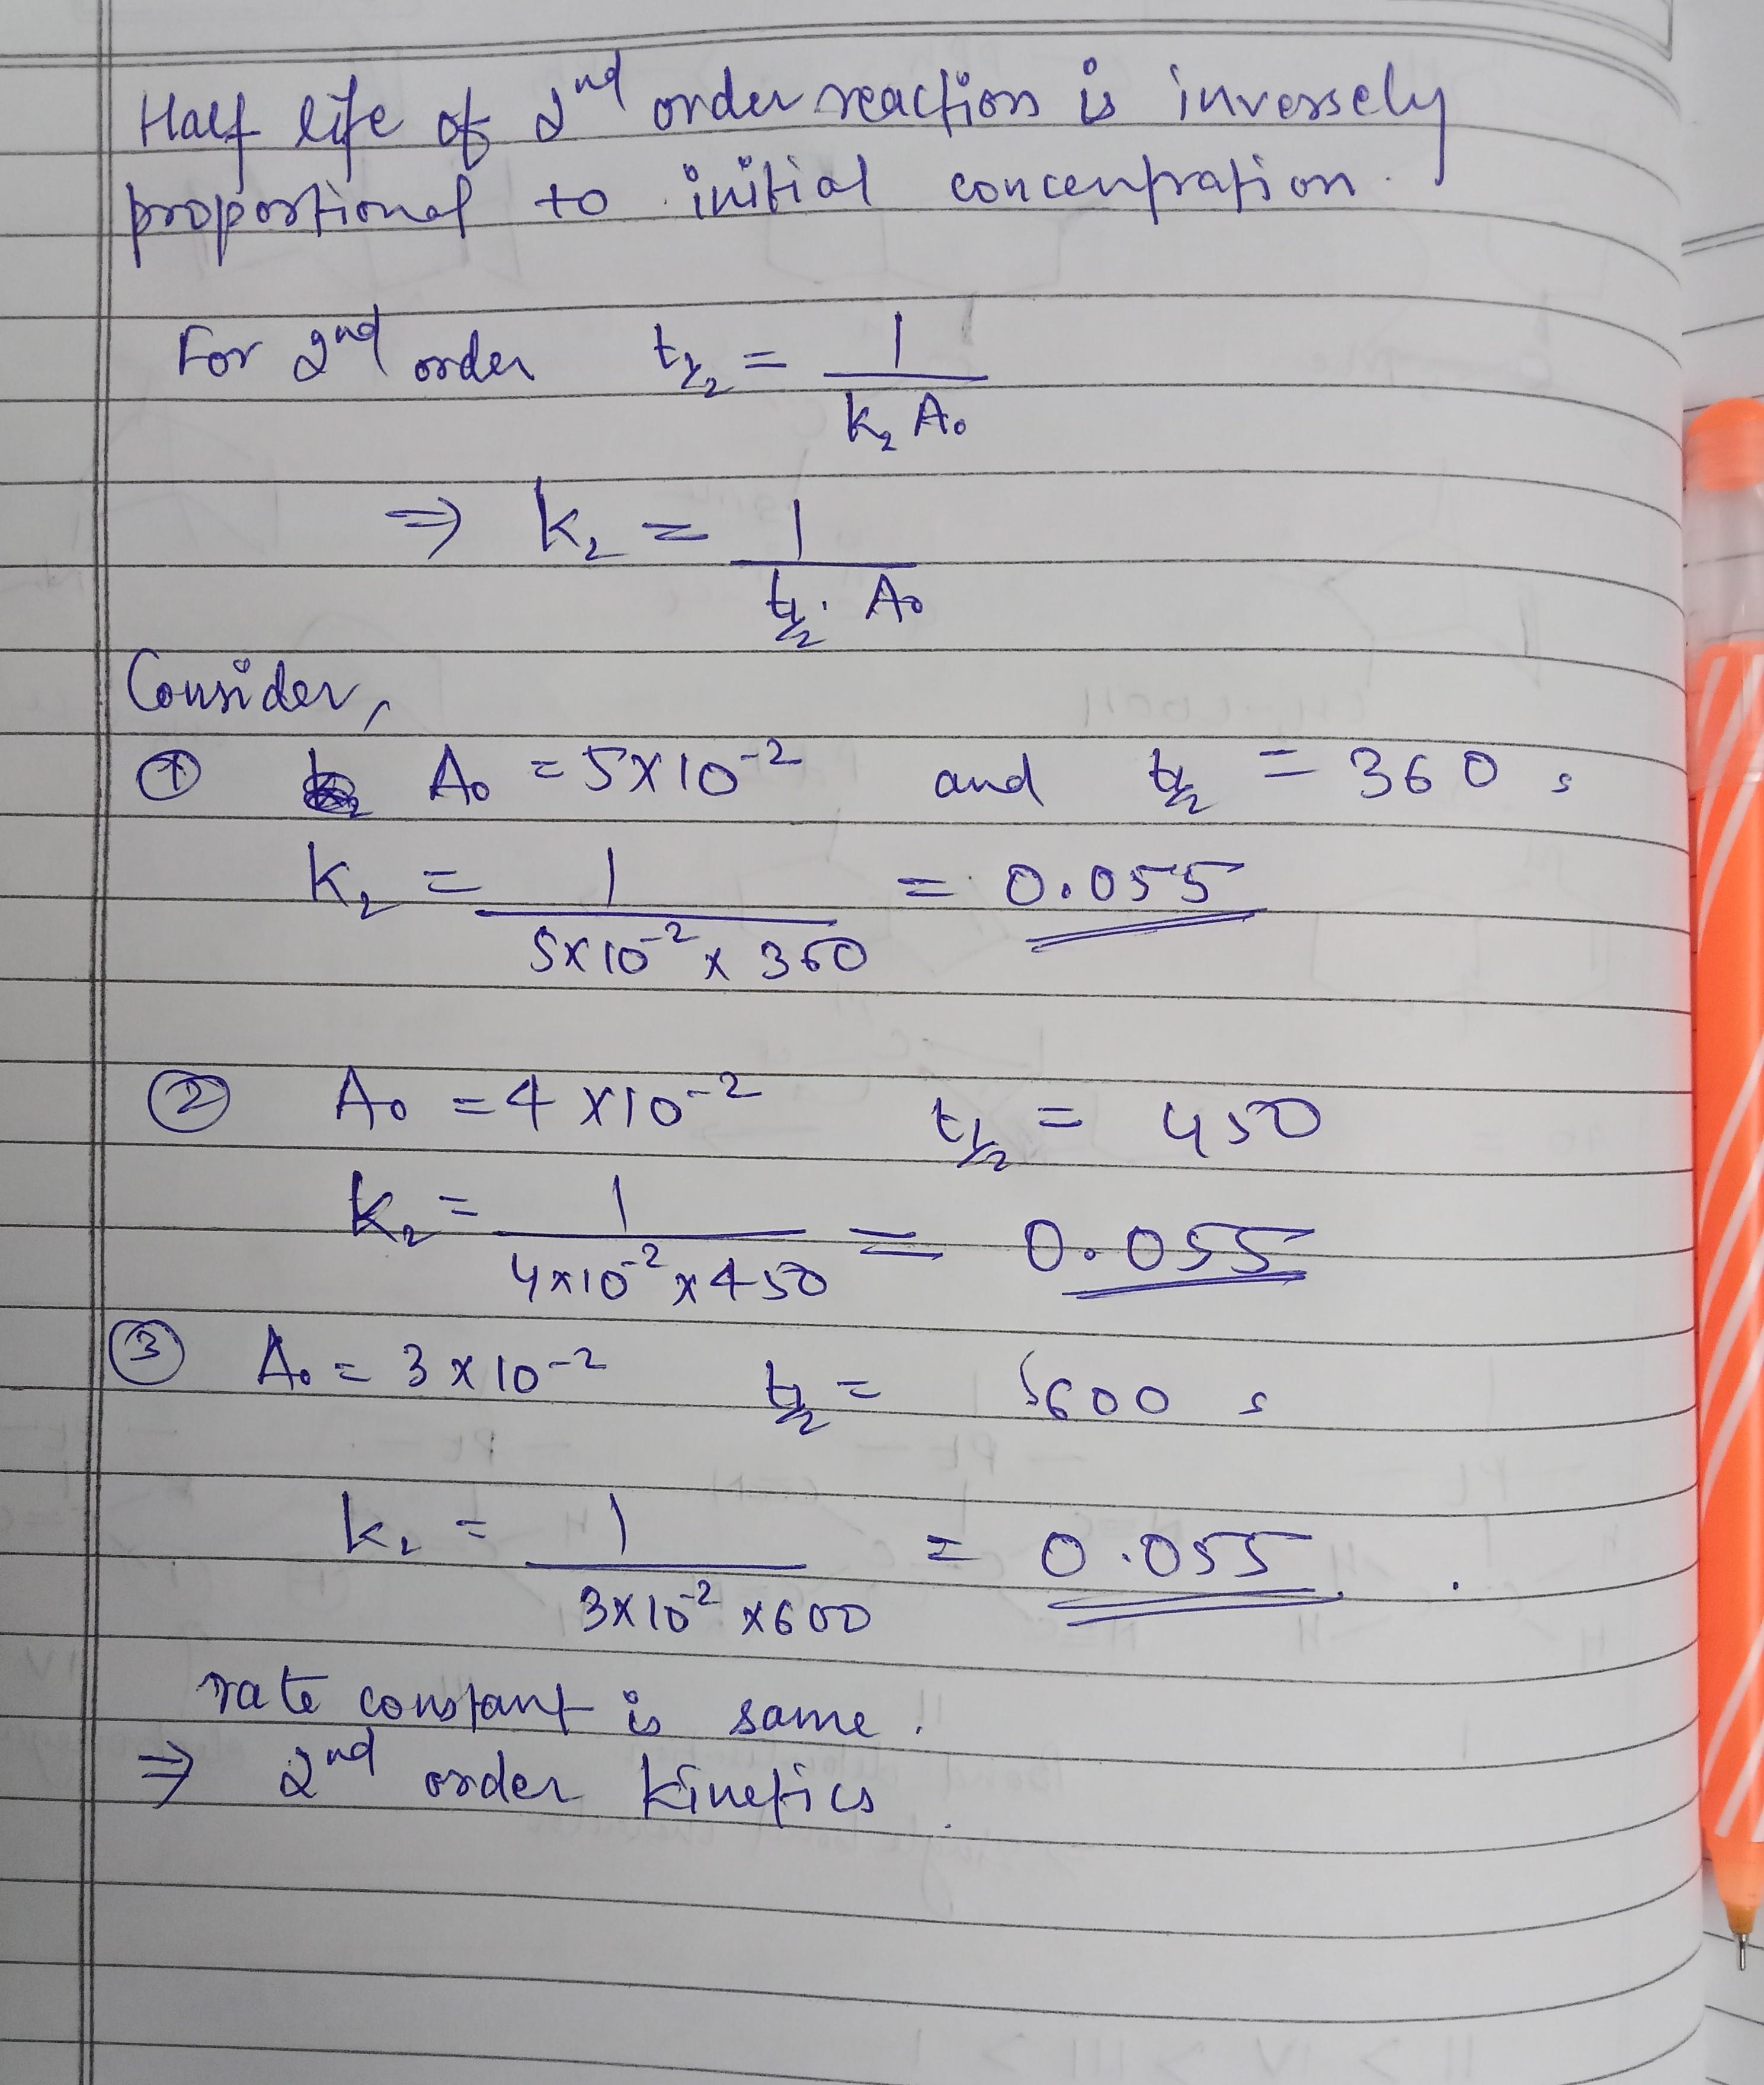 Half life of 2nd order reaction is inversely
proportional to initial concentration.
For 2nd order t1/2 = 1 / k2 A0
⇒ k2 = 1 / t1/2 . A0
Consider,
① A0 = 5×10^-2 and t1/2 = 360 s
k2 = 1 / 5×10^-2 × 360 = 0.055
② A0 = 4×10^-2 t1/2 = 450
k2 = 1 / 4×10^-2 × 450 = 0.055
③ A0 = 3×10^-2 t1/2 = 600 s
k2 = 1 / 3×10^-2 × 600 = 0.055
rate constant is same.
⇒ 2nd order kinetics.